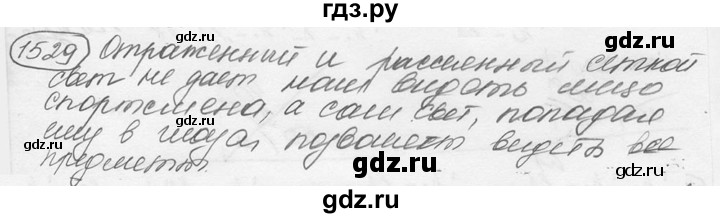 гдз.ру
1529 Отраженный и рассеянный сеткой
свет не дает нам видеть лицо
спортсмена, а сам свет, попадая
ему в глаза, позволяет видеть все
предметы.
gdz.ru gdz.ru gdz.ru